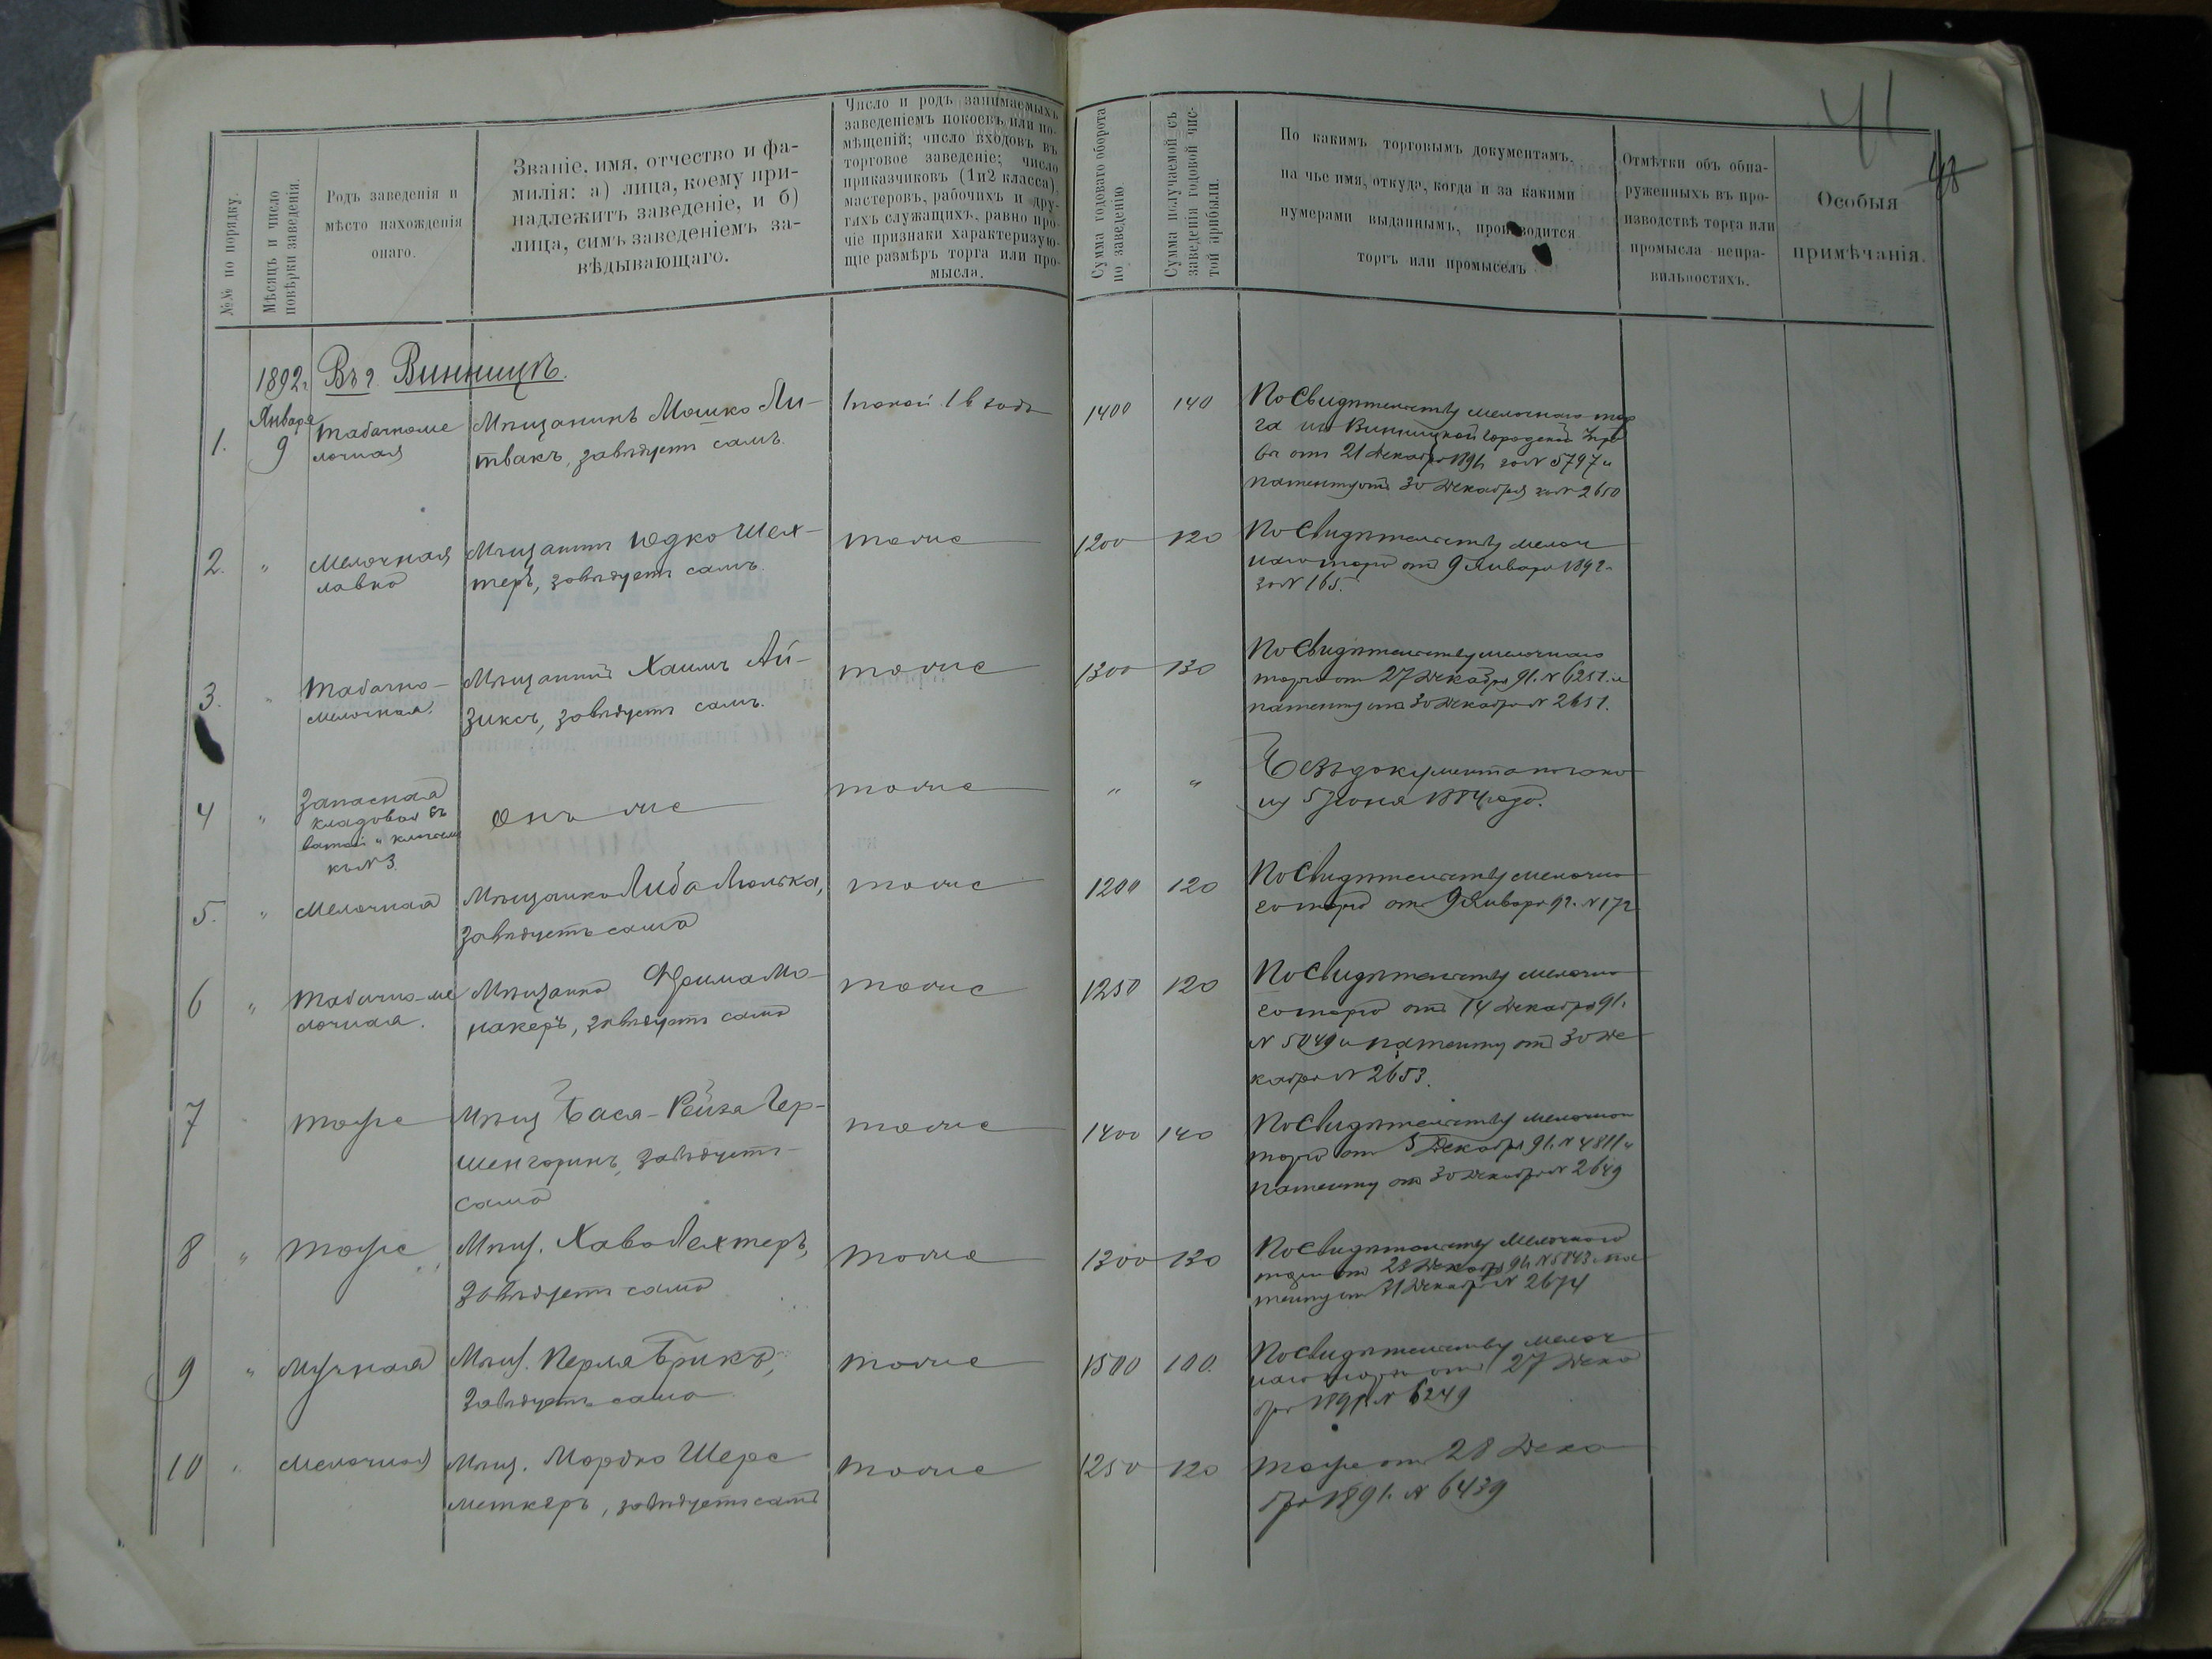 41
48
№№ по порядку.
Мѣсяцъ и число
повѣрки заведенія.
Родъ заведенія и
мѣсто нахожденія
онаго.
Званіе, имя, отчество и фа-
милія: а) лица, коему при-
надлежитъ заведеніе, и б)
лица, симъ заведеніемъ за-
вѣдывающаго.
Число и родъ занимаемыхъ
заведеніемъ покоевъ или по-
мѣщеній; число входовъ въ
торговое заведеніе; число
приказчиковъ (1 и 2 класса),
мастеровъ, рабочихъ и дру-
гихъ служащихъ, равно про-
чіе признаки характеризую-
щіе размѣръ торга или про-
мысла.
Сумма годоваго оборота
по заведенію.
Сумма получаемой съ
заведенія годовой чис-
той прибыли.
По какимъ торговымъ документамъ,
на чье имя, откуда, когда и за какими
нумерами выданнымъ, производится
торгъ или промыселъ
Отмѣтки объ обна-
руженныхъ въ про-
изводствѣ торга или
промысла непра-
вильностяхъ.
Особыя
примѣчанія.
1892 г.
Въ г. Винницѣ.
1.
Января
9
Табачноме
лочная
Мѣщанинъ Мошко Ли-
твакъ, завѣдуетъ самъ.
1 покой 1 входъ
1400
140
По свидѣтельству мелочнаго тор
га изъ Винницкой Городской Упра
вы отъ 21 Декабря 1891 за № 5797 и
патенту отъ 30 Декабря за № 2650
2.
"
Мелочная
лавка
Мѣщанинъ Юдко Шех-
теръ, завѣдуетъ самъ.
тоже
1200
120
По свидѣтельству мелоч
наго торга отъ 9 Января 1892 г.
за № 165.
3.
"
Табачно-
мелочная.
Мѣщанинъ Хаимъ Ай-
зиксъ, завѣдуетъ самъ.
тоже
1300
130
По свидѣтельству мелочнаго
торга отъ 27 Декабря 91. № 6251. и
патенту отъ 30 Декабря № 2651.
4
"
Запасная
кладовая съ
къ № 3.
Онъ же
тоже
"
"
Безъ документа
5 Іюня 1884 года.
5.
"
Мелочная
Мѣщанка Либа Люлька,
завѣдуетъ сама
тоже
1200
120
По свидѣтельству мелочна
го торга отъ 9 Января 92. № 172
6
"
Табачно-ме
лочная.
Мѣщанка Фрима Мо-
накеръ, завѣдуетъ сама
тоже
1250
120
По свидѣтельству мелочна
го торга отъ 14 Декабря 91.
№ 5049 и патенту отъ 30 Де
кабря № 2653.
7
тоже
Мѣщ Бася-Рейза Гер-
шенгоринъ, завѣдуетъ
сама
тоже
1400
140
По свидѣтельству мелочнаго
торга отъ 5 Декабря 91. № 4811 и
патенту отъ 30 Декабря № 2649
8
"
тоже
Мѣщ. Хава Лехтеръ,
завѣдуетъ сама
тоже
1300
130
По свидѣтельству мелочнаго
торга отъ 23 Декабря 91. № 5843 и па
тенту отъ 31 Декабря № 2674
9
"
Мучная
Мѣщ. Перля Брикъ,
завѣдуетъ сама
тоже
1500
100.
По свидѣтельству мелоч
наго торга отъ 27 Дека
бря 1891. № 6249
10
"
Мелочная
Мѣщ. Мордко Шере
меткеръ, завѣдуетъ самъ
тоже
1250
120
тоже отъ 28 Дека
бря 1891. № 6439